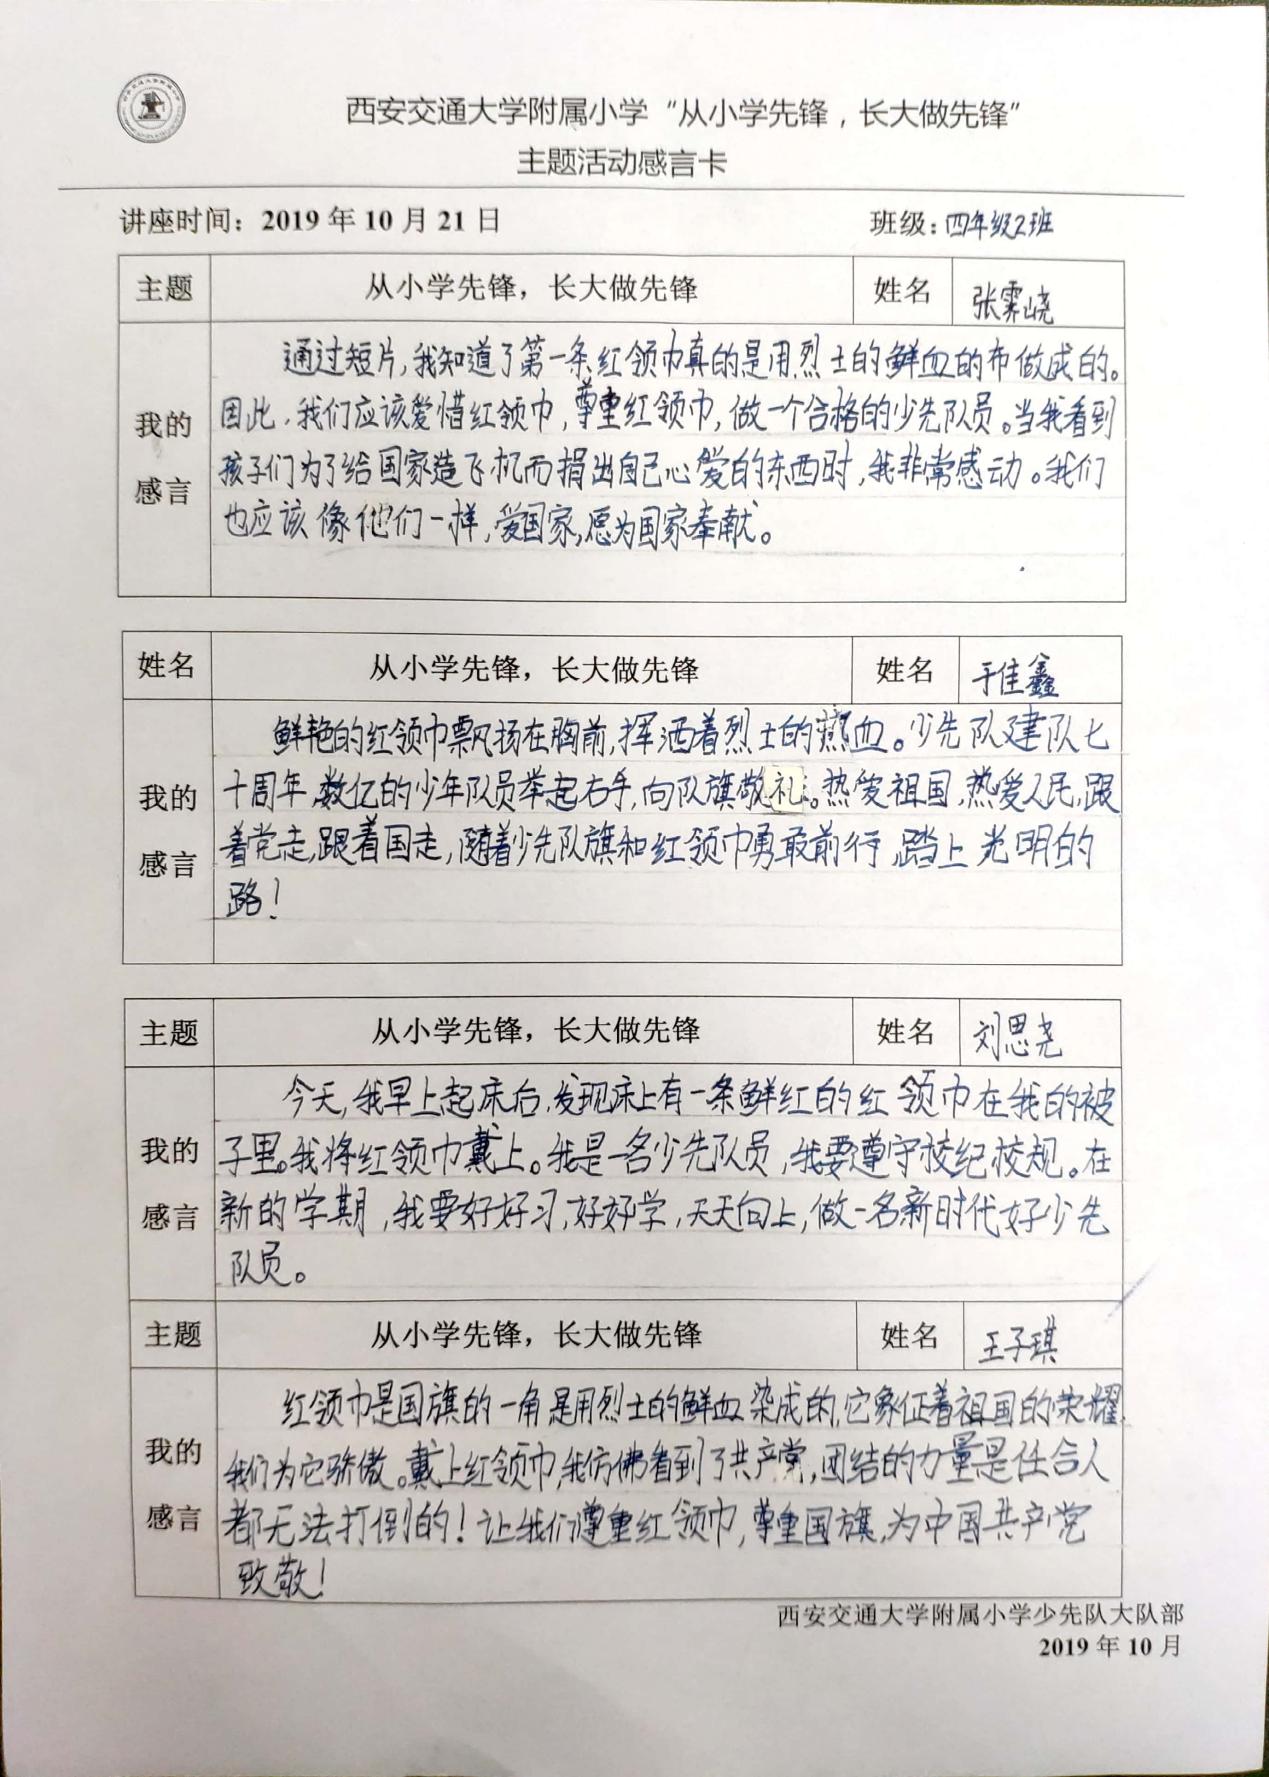 西安交通大学附属小学“从小学先锋，长大做先锋”
主题活动感言卡
讲座时间：2019 年 10 月 21 日 班级：四年级2班
主题 从小学先锋，长大做先锋 姓名 张霁峣
我的感言
通过短片，我知道了第一条红领巾真的是用烈士的鲜血的布做成的。
因此，我们应该爱惜红领巾，尊重红领巾，做一个合格的少先队员。当我看到
孩子们为了给国家造飞机而捐出自己心爱的东西时，我非常感动。我们
也应该像他们一样，爱国家，愿为国家奉献。
姓名 从小学先锋，长大做先锋 姓名 于佳鑫
我的感言
鲜艳的红领巾飘扬在胸前，挥洒着烈士的热血。少先队建队七
十周年，数亿的少年队员举起右手，向队旗敬礼。热爱祖国，热爱人民，跟
着党走，跟着国走，随着少先队旗和红领巾勇敢前行，踏上光明的
路！
主题 从小学先锋，长大做先锋 姓名 刘思尧
我的感言
今天，我早上起床后，发现床上有一条鲜红的红领巾在我的被
子里。我将红领巾戴上。我是一名少先队员，我要遵守校纪校规。在
新的学期，我要好好习，好好学，天天向上，做一名新时代好少先
队员。
主题 从小学先锋，长大做先锋 姓名 王子琪
我的感言
红领巾是国旗的一角是用烈士的鲜血染成的，它象征着祖国的荣耀，
我们为它骄傲。戴上红领巾，我仿佛看到了共产党，团结的力量是任合人
都无法打倒的！让我们遵重红领巾，尊重国旗，为中国共产党
致敬！
西安交通大学附属小学少先队大队部
2019 年 10 月